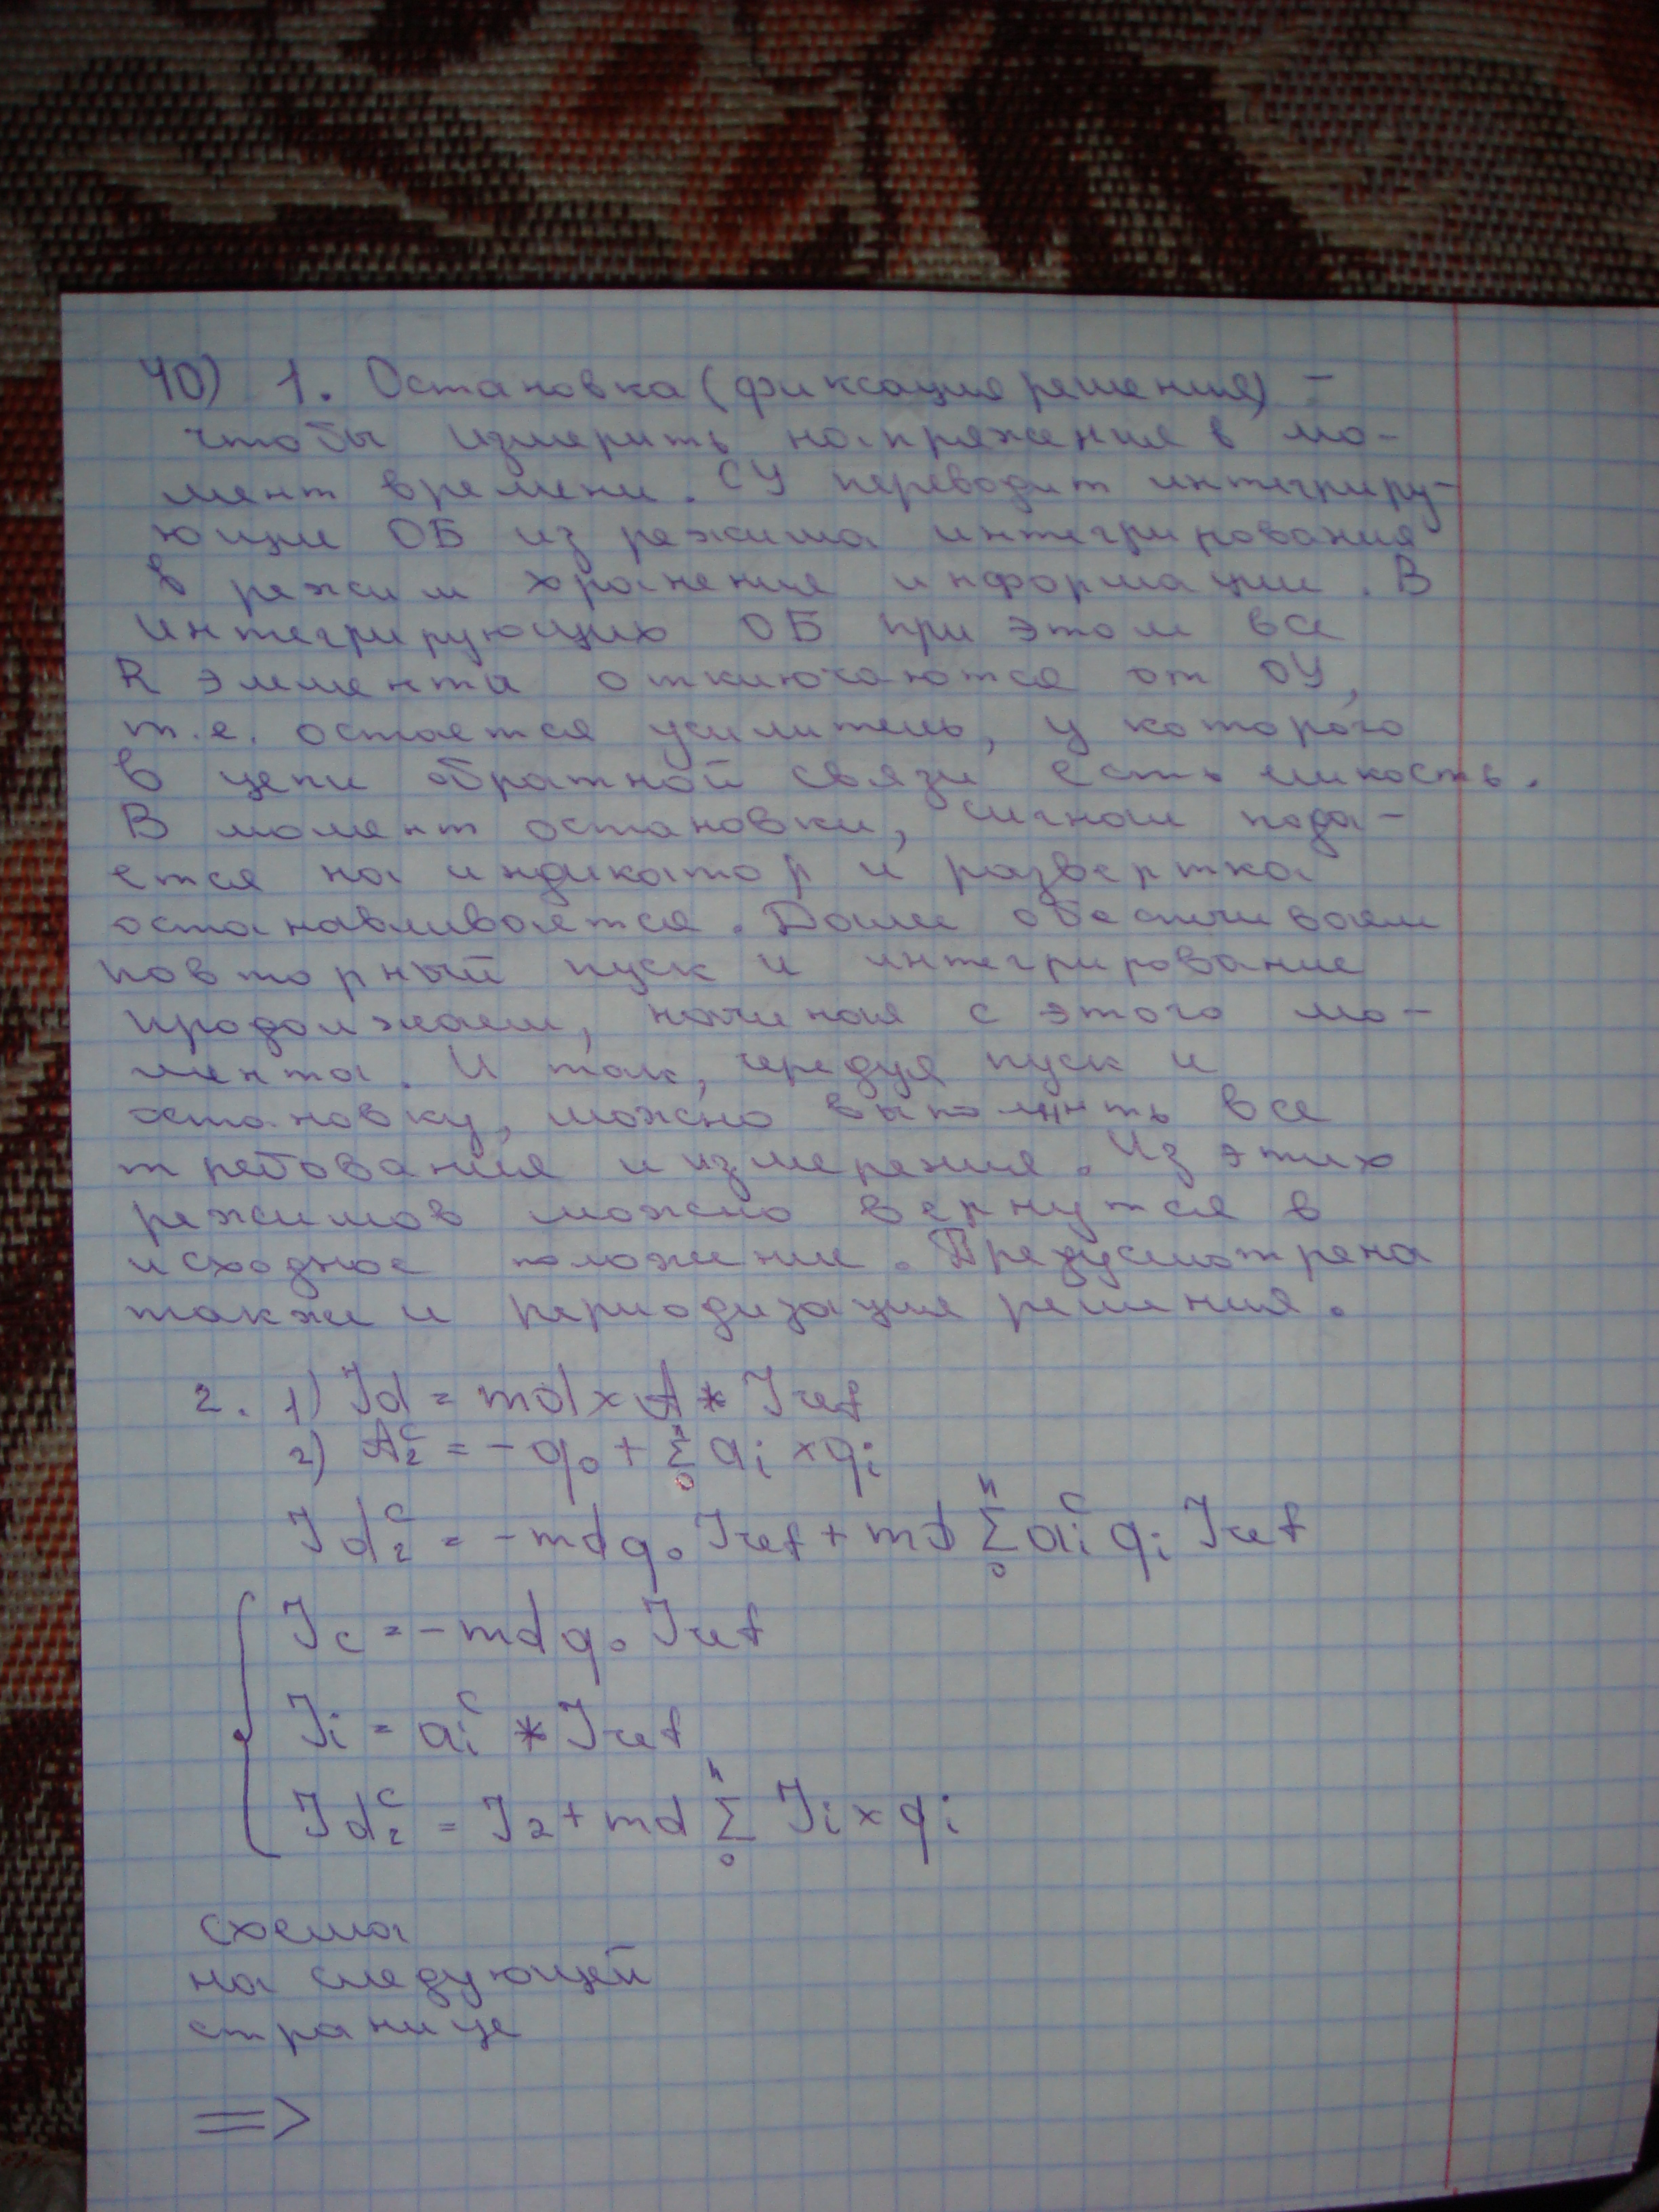 40) 1. Остановка (фиксация решения) –
чтобы измерить напряжения в мо-
мент времени. СУ переводит интегриру-
ющие ОБ из режима интегрирования
в режим хранения информации. В
интегрирующих ОБ при этом все
R элемента отключаются от ОУ,
т.е. остается усилитель, у которого
в цепи обратной связи есть емкость.
В момент остановки, сигнал пода-
ется на индикатор и развертка
останавливается. Далее обеспечиваем
повторный пуск и интегрирование
продолжаем, начиная с этого мо-
мента. И так, чередуя пуск и
остановку, можно выполнить все
требования и измерения. Из этих
режимов можно вернутся в
исходное положение. Предусмотрена
также и периодизация решения.
2. 1) Jd = md x A * Jref
2) A₂ᶜ = - q₀ + Σ₀ⁿ ai x qi
Jd₂ᶜ = -md q₀ Jref + md Σ₀ⁿ aiᶜ qi Jref
Jc = -md q₀ Jref
Ji = aiᶜ * Jref
Jd₂ᶜ = J₂ + md Σ₀ⁿ Ji x qi
схема
на следующей
странице
=>